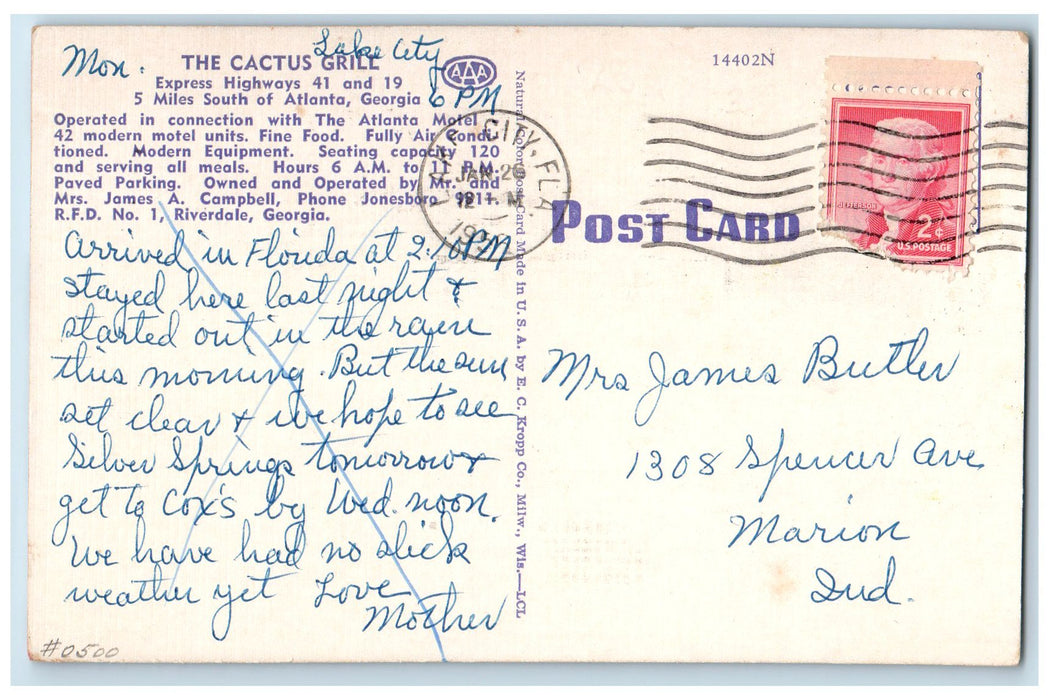 Mon.
Lake City
6 PM
THE CACTUS GRILL
AAA
Express Highways 41 and 19
5 Miles South of Atlanta, Georgia
Operated in connection with The Atlanta Motel
42 modern motel units. Fine Food. Fully Air Condi-
tioned. Modern Equipment. Seating capacity 120
and serving all meals. Hours 6 A.M. to 11 P.M.
Paved Parking. Owned and Operated by Mr. and
Mrs. James A. Campbell, Phone Jonesboro 9811.
R.F.D. No. 1, Riverdale, Georgia.
Arrived in Florida at 2:10 PM
stayed here last night &
started out in the rain
this morning. But the sun
set clear & we hope to see
Silver Springs tomorrow &
get to Cox's by Wed. noon.
We have had no slick
weather yet Love
Mother
#0500
Natural Color Post Card Made in U.S.A. by E. C. Kropp Co., Milw., Wis.—LCL
14402N
LAKE CITY, FLA.
JAN 20
12 M
POST CARD
JEFFERSON
2¢
U.S. POSTAGE
Mrs James Butler
1308 Spencer Ave
Marion
Ind.